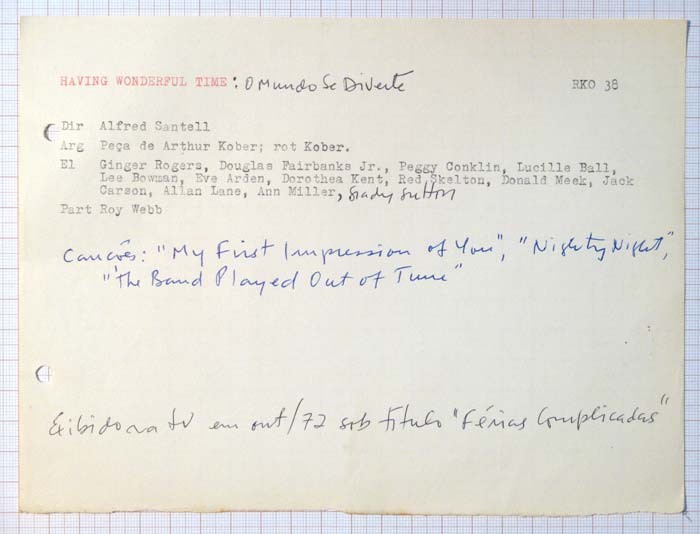 HAVING WONDERFUL TIME : O Mundo Se Diverte RKO 38
Dir Alfred Santell
Arg Peça de Arthur Kober; rot Kober.
El Ginger Rogers, Douglas Fairbanks Jr., Peggy Conklin, Lucille Ball,
Lee Bowman, Eve Arden, Dorothea Kent, Red Skelton, Donald Meek, Jack
Carson, Allan Lane, Ann Miller, Grady Sutton
Part Roy Webb
Canções: "My First Impression of You", "Nighty Night",
"The Band Played Out of Tune"
Exibido na tv em out/72 sob título "Férias Complicadas"